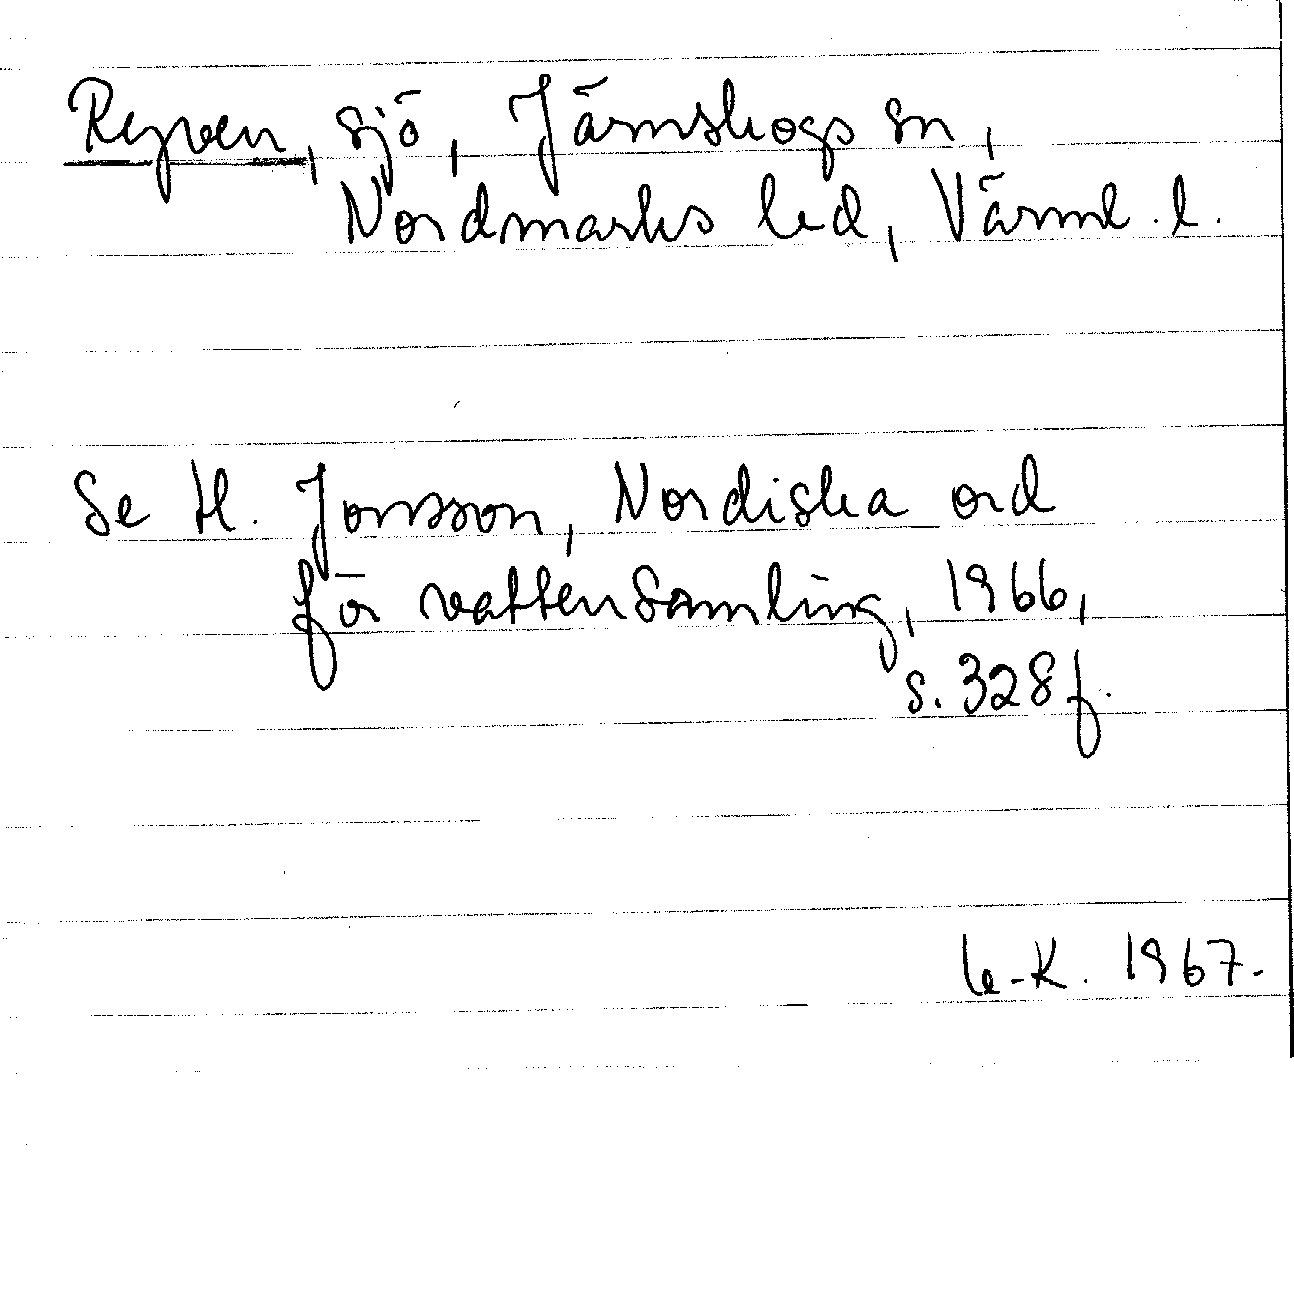 Reyven, sjö, Järnskogs sn,
Nordmarks hd, Värml. l.
Se H. Jonsson, Nordiska ord
för vattensamling, 1966,
s. 328 f.
K. 1967.